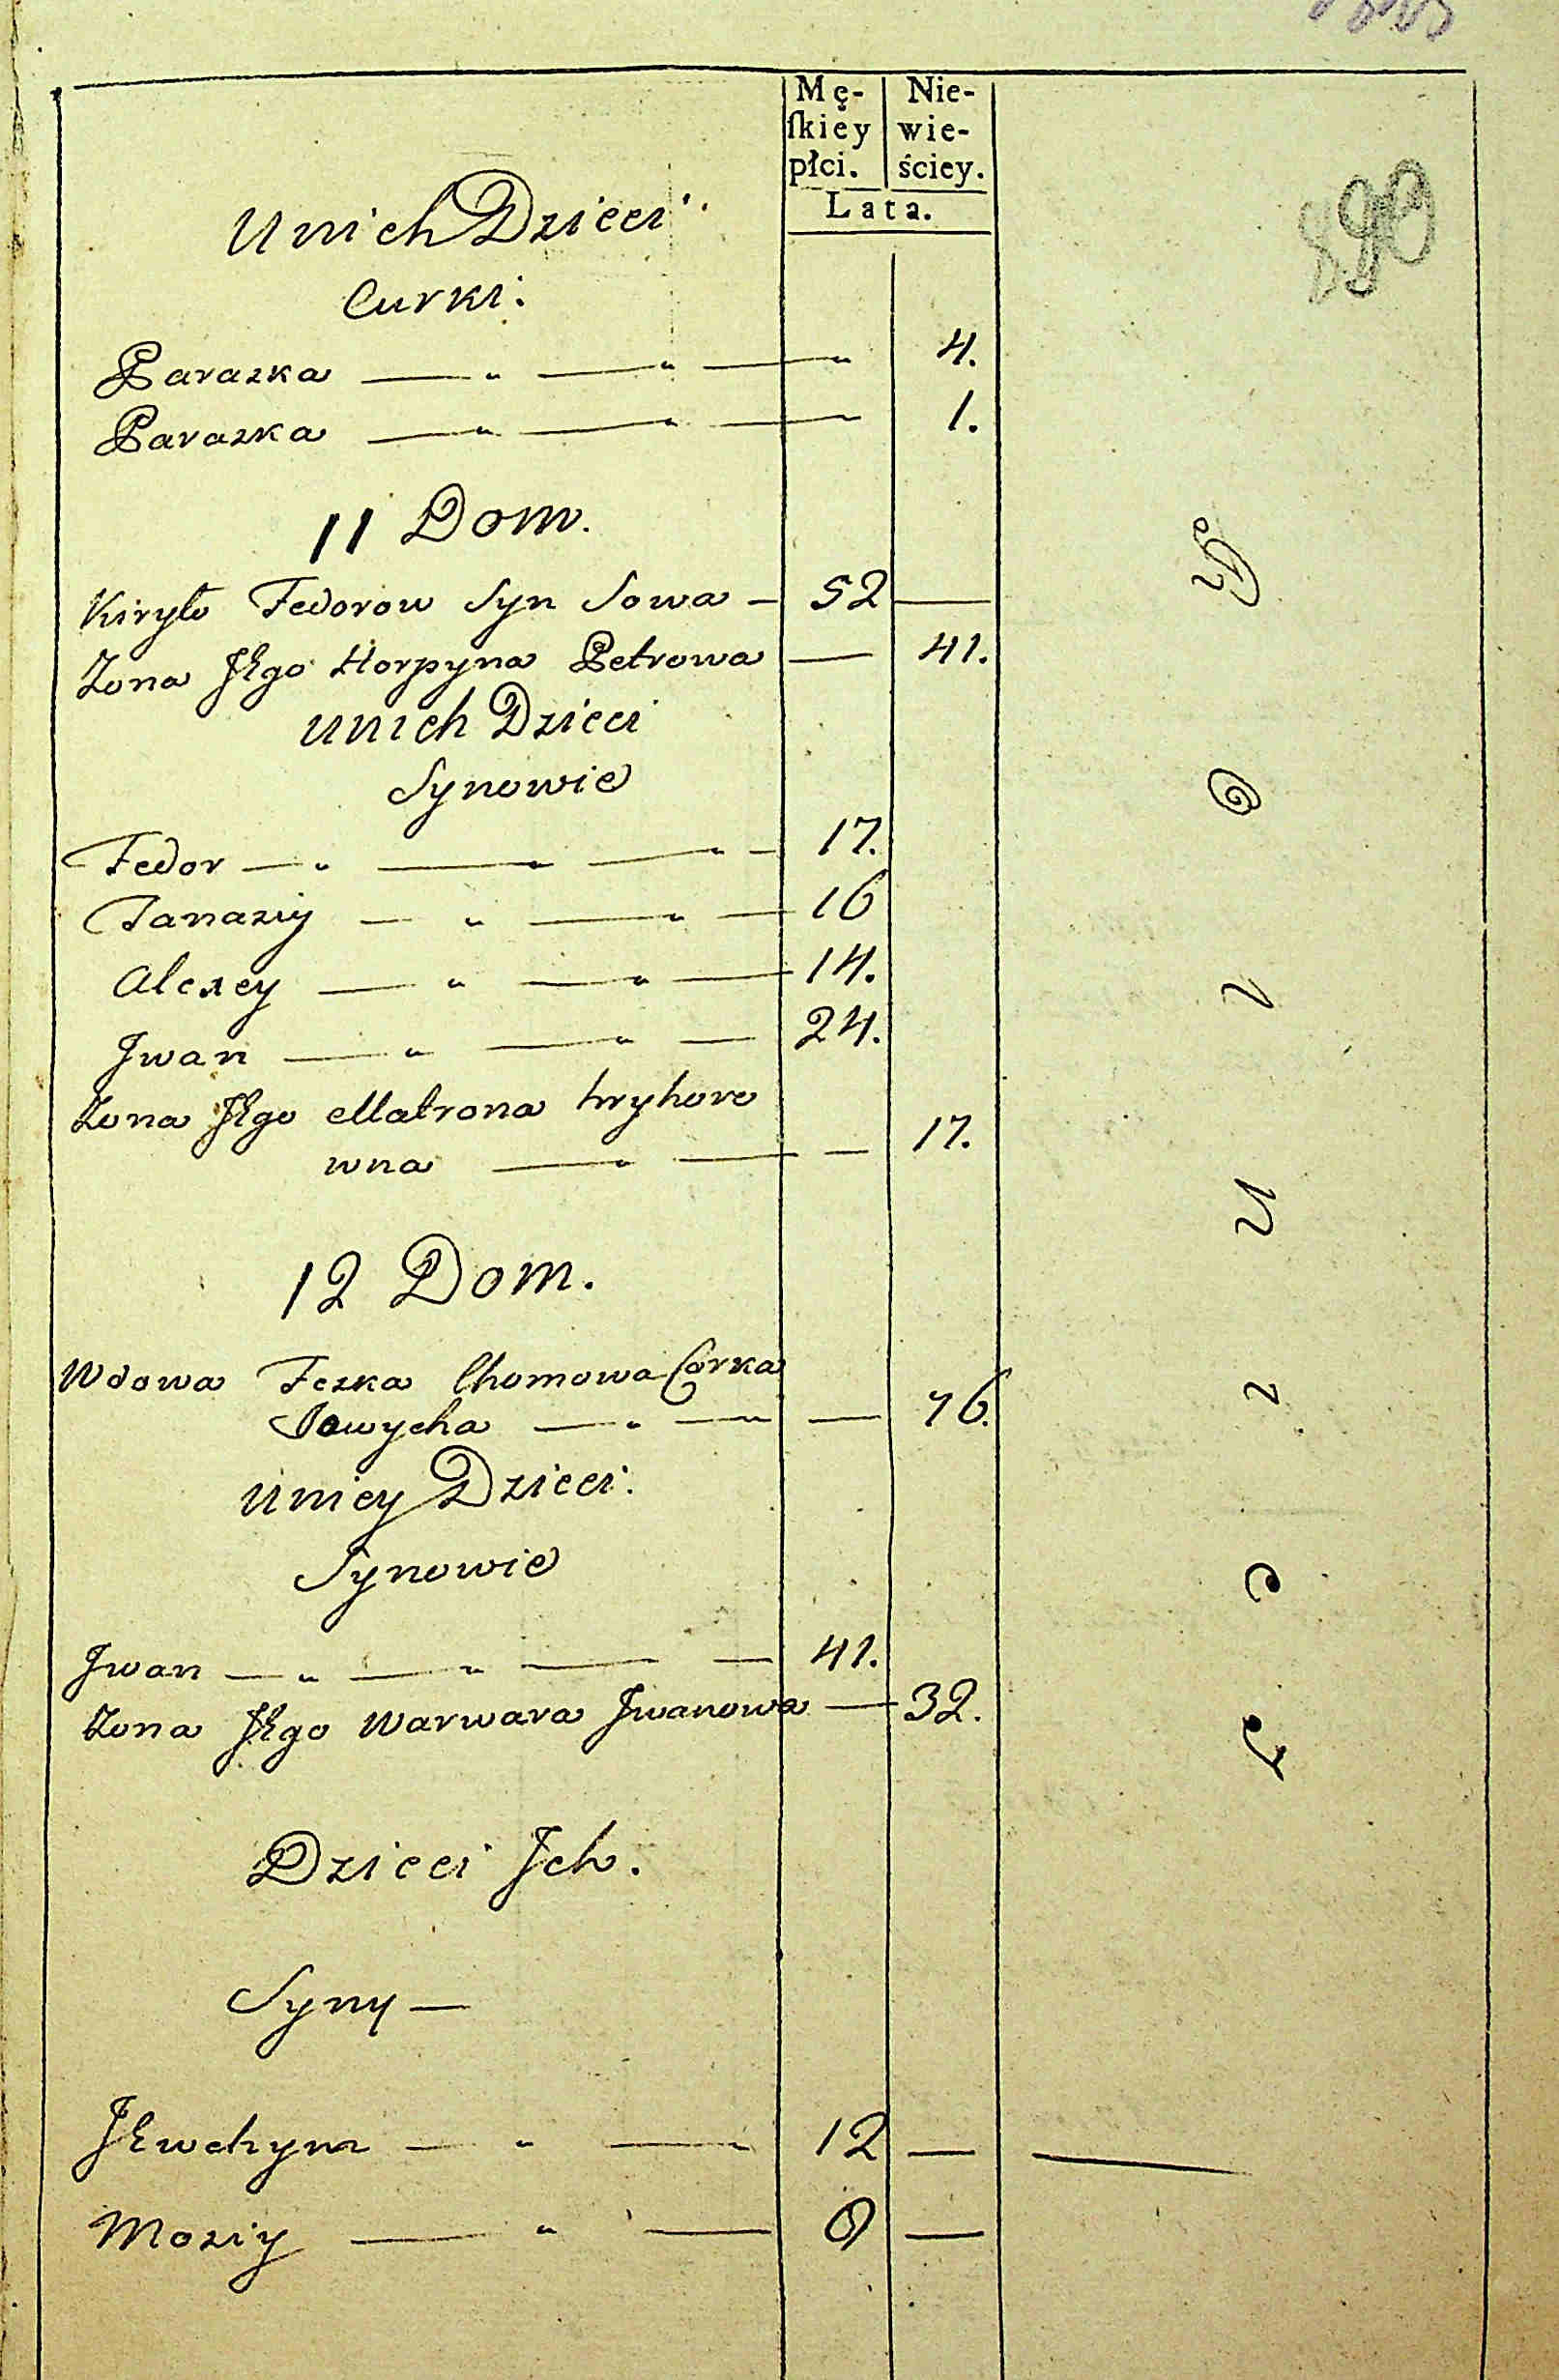 Mę-
ſkiey
płci.
Nie-
wie-
ściey.
Lata.
890
Unich Dzieci
Curki:
Paraska — „ — „ — „ 4.
Paraska — „ — „ — 1.
11 Dom.
Kiryło Fedorow Syn Sowa — 52 —
Zona Jego Horpyna Petrowa — 41.
Unich Dzieci
Synowie
Fedor — „ — „ — „ — 17.
Tanasiy — „ — „ — 16
Alexey — „ — „ — 14.
Jwan — „ — „ — 24.
Zona Jego Matrona hryhoro
wna — „ — — 17.
12 Dom.
Wdowa Feska Chomowa Corka
Sowycha — „ — — 76.
Uniey Dzieci:
Synowie
Jwan — „ — „ — — 41.
Zona Jego Warwara Jwanowa — 32.
Dzieci Jch.
Syny —
Jewchym — „ — „ 12 — —
Mosiy — „ — 9 —